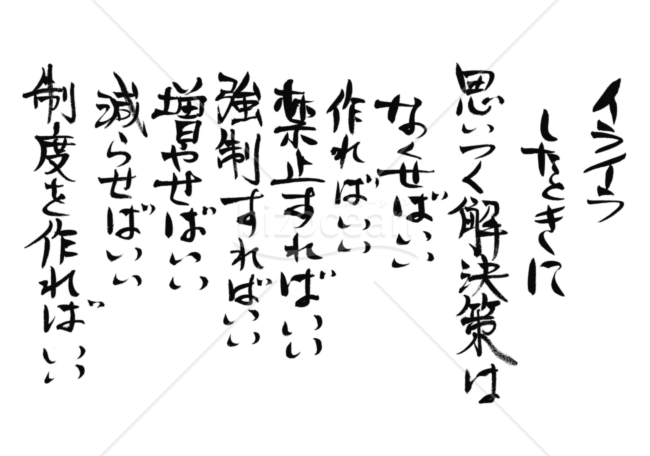 イライラ
したときに
思いつく解決策は
なくせばいい
作ればいい
禁止すればいい
強制すればいい
増やせばいい
減らせばいい
制度を作ればいい
pizocean